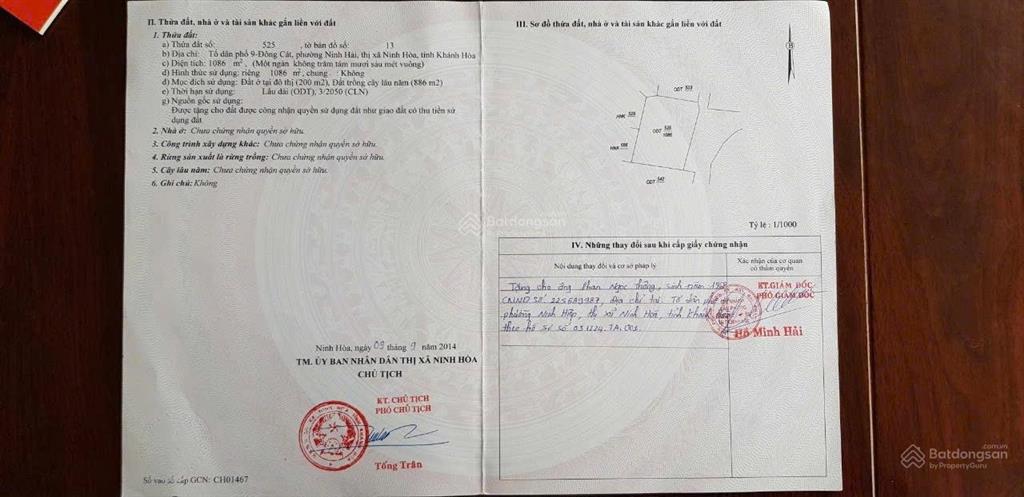 II. Thửa đất, nhà ở và tài sản khác gắn liền với đất
1. Thửa đất:
a) Thửa đất số: 525 , tờ bản đồ số: 13
b) Địa chỉ: Tổ dân phố 9-Đông Cát, phường Ninh Hải, thị xã Ninh Hòa, tỉnh Khánh Hòa
c) Diện tích: 1086 m², (Một ngàn không trăm tám mươi sáu mét vuông)
d) Hình thức sử dụng: riêng 1086 m², chung : Không
đ) Mục đích sử dụng: Đất ở tại đô thị (200 m2), Đất trồng cây lâu năm (886 m2)
e) Thời hạn sử dụng: Lâu dài (ODT), 3/2050 (CLN)
g) Nguồn gốc sử dụng:
Được tặng cho đất được công nhận quyền sử dụng đất như giao đất có thu tiền sử
dụng đất
2. Nhà ở: Chưa chứng nhận quyền sở hữu.
3. Công trình xây dựng khác: Chưa chứng nhận quyền sở hữu.
4. Rừng sản xuất là rừng trồng: Chưa chứng nhận quyền sở hữu.
5. Cây lâu năm: Chưa chứng nhận quyền sở hữu.
6. Ghi chú: Không
Ninh Hòa, ngày 09 tháng 9 năm 2014
TM. ỦY BAN NHÂN DÂN THỊ XÃ NINH HÒA
CHỦ TỊCH
KT. CHỦ TỊCH
PHÓ CHỦ TỊCH
Tống Trân
Số vào sổ cấp GCN: CH01467
III. Sơ đồ thửa đất, nhà ở và tài sản khác gắn liền với đất
ODT
HNK
ODT 525
1086
HNK
ODT 542
Tỷ lệ : 1/1000
IV. Những thay đổi sau khi cấp giấy chứng nhận
Nội dung thay đổi và cơ sở pháp lý
Xác nhận của cơ quan
có thẩm quyền
Tặng cho ông Phan Ngọc Thắng, sinh năm
CMND số 225689987, địa chỉ tại: Tổ dân phố
phường Ninh Hiệp, thị xã Ninh Hoà, tỉnh Khánh Hòa
theo hồ sơ số 031224.TA.001.
KT.GIÁM ĐỐC
PHÓ GIÁM ĐỐC
Hồ Minh Hải
Batdongsan
Batdongsan.com.vn
by PropertyGuru